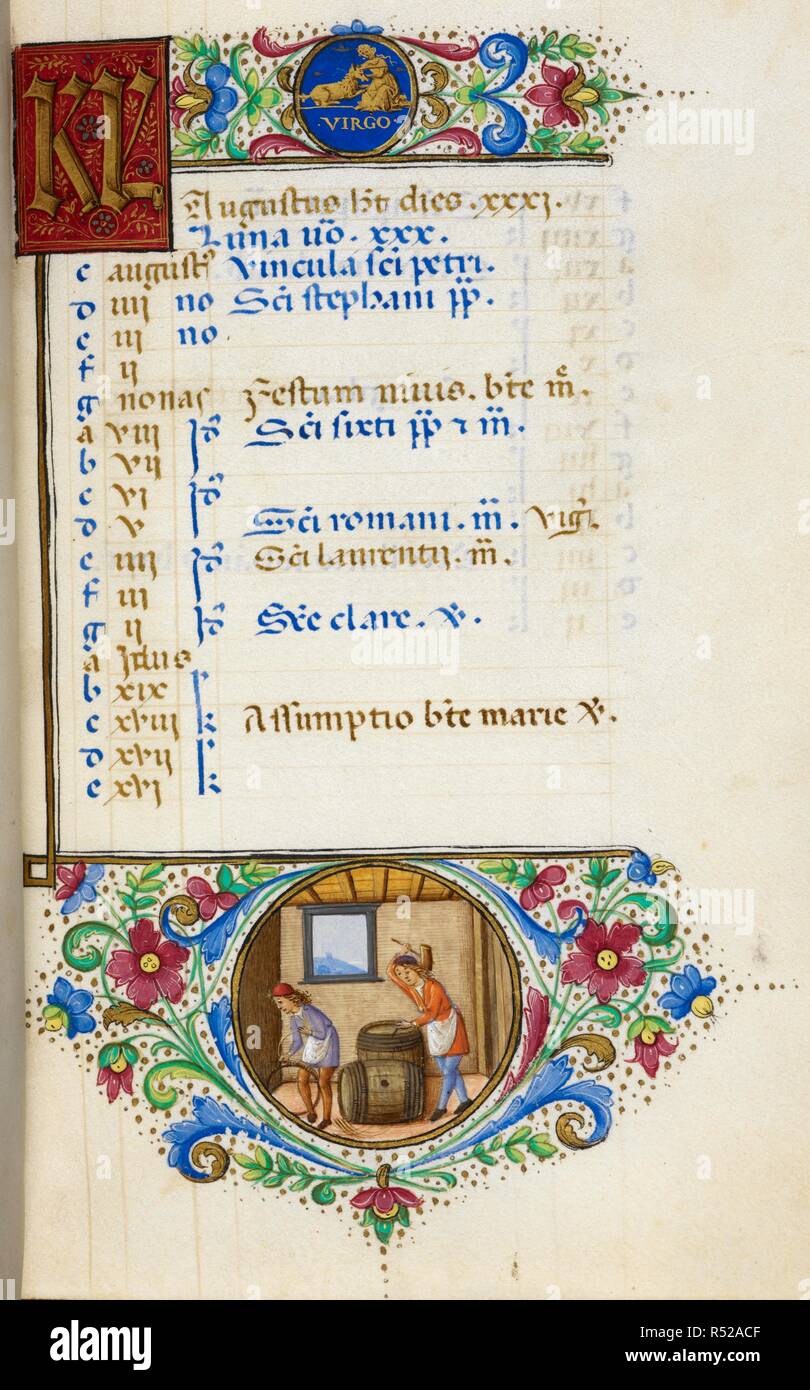 KL
VIRGO
Augustus ht dies .xxxj.
Luna vo. xxx.
c august Vincula sci petri.
d iiij no Sci stephani pp.
e iij no
f ij
g nonas Festum niuis. bte m.
a viij id Sci sixti pp et m.
b vij
c vj id
d v Sci romani. m. vigi.
e iiij id Sci laurentij. m.
f iij
g ij id Scte clare. v.
a Idus
b xix
c xviij k Assumptio bte marie v.
d xvij
e xvj k
alamy
alamy
alamy
Image ID: R52ACF
www.alamy.com